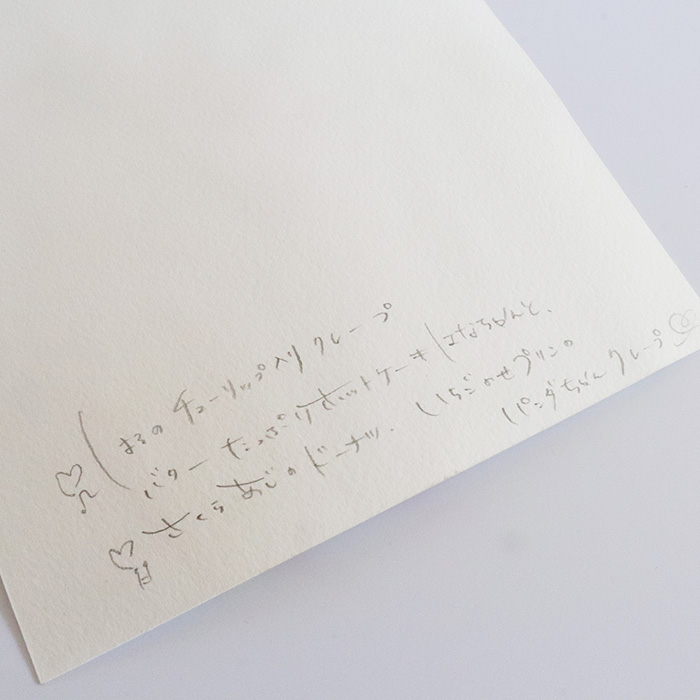 はるの チューリップ入り クレープ
バターたっぷりホットケーキ
はなちゃんと、
さくらあじのドーナツ.
いちごのせプリンの
パンダちゃんクレープ